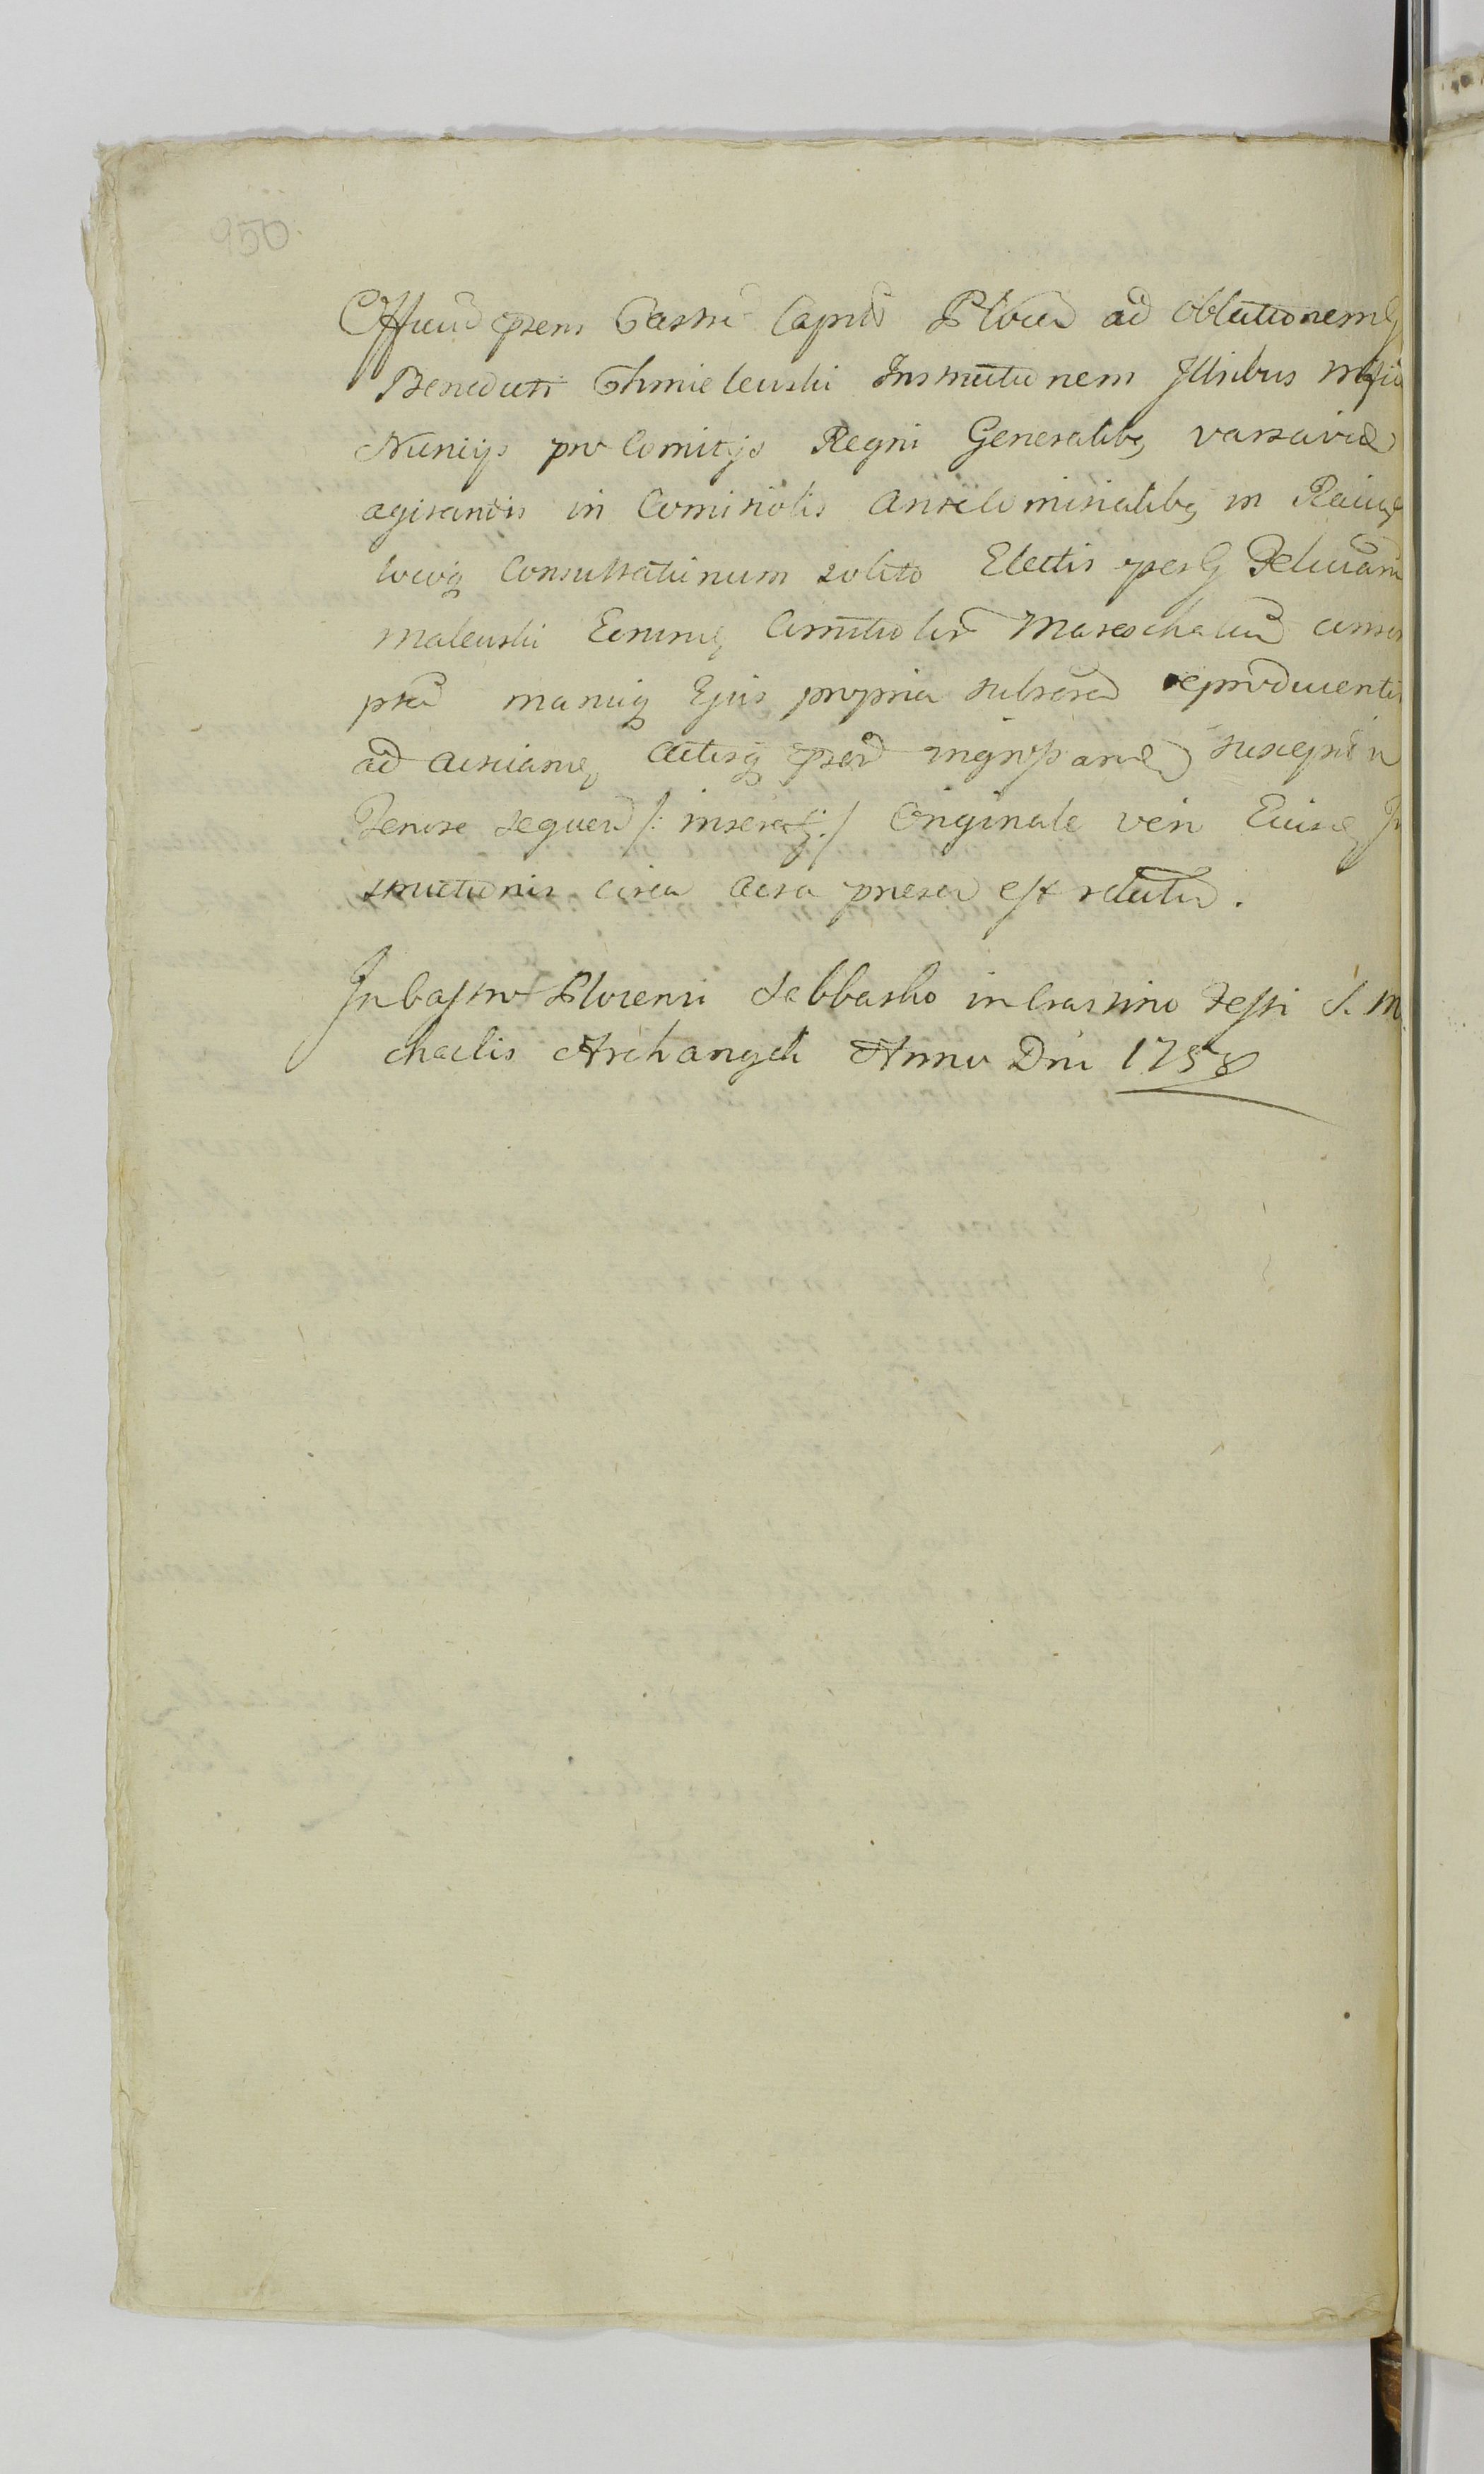 950
Officiu psens Castre Capitle Plocen ad oblationem G
Benedicti Chmielewski Instructionem Illribus Mgficis
Nuncijs pro Comitijs Regni Generalibq Varsaviae
agitandis in Comitiolis AnteComitialibq in Raciąż
locoq Consultationum solito Electis per G
Malewski Eorundq Comitiolor Mareschalcum conscri
ptam manuq Ejus propria subscr reproducentis
ad acticandq Actisq psen ingrossand suscepit
Tenore sequen /: inseratq :/ Originale vero Eiusdq In
structionis circa Acta presen est relictu.
In Castro Plocensi Sabbatho in Crastino Festi S. Mi
chaelis Archangeli Anno Dni 1758